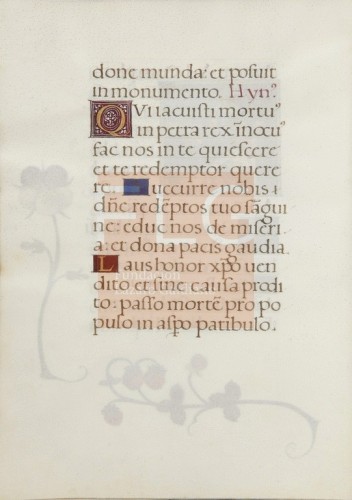 done munda: et posuit
in monumento. Hynꝰ
QUi iacuisti mortuꝰ
in petra rex īnocuꝰ
fac nos in te quiescere
et te redemptor quere
re. Succurre nobis
dñe redēptos tuo sāgui
ne: educ nos de miseri
a: et dona pacis gaudia.
Laus honor xp̄o uen
dito et sine causa prodi
to: passo mortē pro po
pulo in asp̄o patibulo.
FLG